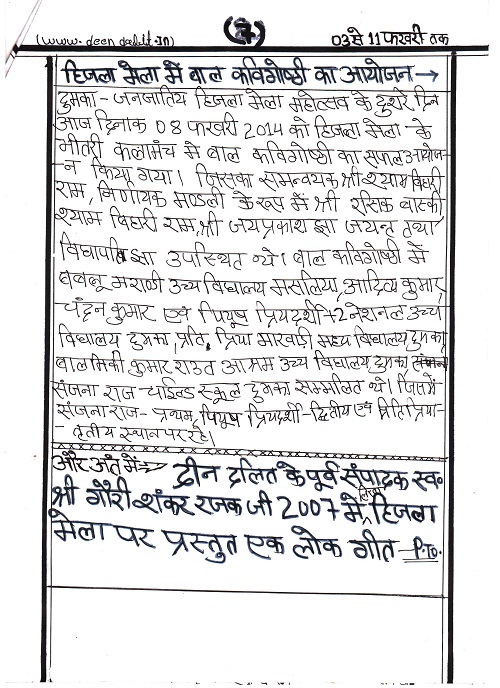 (www.deen dalit.in)
(7)
03 से 11 फरवरी तक
हिजला मेला में बाल कविगोष्ठी का आयोजन →
दुमका - जनजातिय हिजला मेला महोत्सव के दुसरे दिन
आज दिनांक 08 फरवरी 2014 को हिजला मेला - के
भीतरी कलामंच में बाल कविगोष्ठी का सफल आयोज-
न किया गया। जिसका समन्वयक श्री श्याम बिहारी
राम, निर्णायक मण्डली के रूप में श्री रसिक बास्की
श्याम बिहारी राम, श्री जयप्रकाश झा जयन्त तथा
विद्यापति झा उपस्थित थे। बाल कविगोष्ठी में
बबलू मराण्डी उच्च विद्यालय मसलिया, आदित्य कुमार,
चंदन कुमार एवं पियूष प्रियदर्शी +2 नेशनल उच्च
विद्यालय दुमका, प्रिति प्रिया मारवाड़ी मध्य विद्यालय, दुमका
बालमिकी कुमार राउत आश्रम उच्च विद्यालय, दुमका
संजना राज - चाईल्ड स्कूल दुमका सम्मीलत थे। जिसमें
संजना राज - प्रथम, पियूष प्रियदर्शी - द्वितीय एवं प्रिति प्रिया -
- तृतीय स्थान पर रहे।
और अंत में →→ दीन दलित के पूर्व संपादक स्व॰
श्री गौरी शंकर रजक जी 2007 में हिजला
मेला पर प्रस्तुत एक लोक गीत - P.T.O.